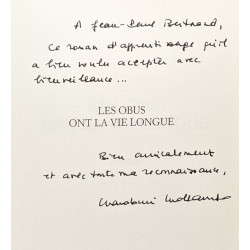 A Jean-Paul Bertrand,
Ce roman d'apprentissage qu'il
a bien voulu accepter avec
bienveillance...
LES OBUS
ONT LA VIE LONGUE
Bien amicalement
et avec toute ma reconnaissance,